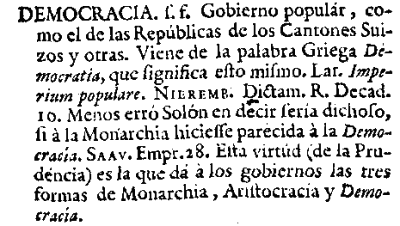 DEMOCRACIA. ſ. f. Gobierno populár, co-
mo el de las Repúblicas de los Cantones Sui-
zos y otras. Viene de la palabra Griega De-
mocratia, que ſignifica eſto miſmo. Lat. Impe-
rium populare. NIEREMB. Dictam. R. Decad.
10. Menos erró Solón en decir ſería dichoſo,
ſi à la Monarchia hicieſſe parecida à la Demo-
cracia. SAAV. Empr. 28. Eſta virtúd (de la Pru-
déncia) es la que dá à los gobiernos las tres
formas de Monarchia, Ariſtocracia y Demo-
cracia.